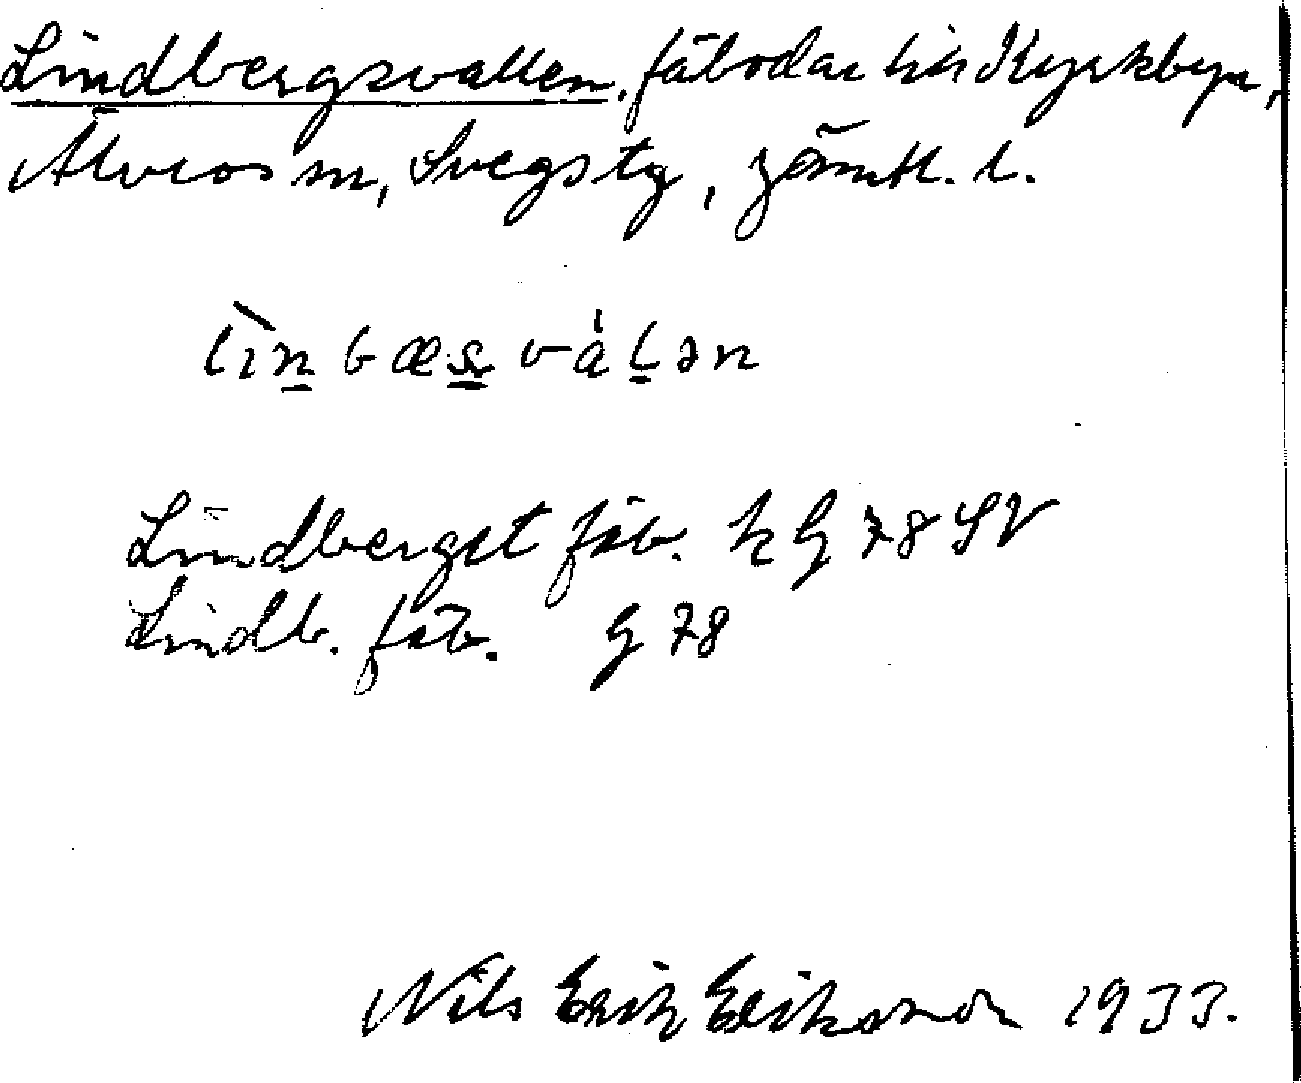 Lindbergsvallen, fäbodar till Kyrkbyn,
Älvros sn, Svegs tg, Jämtl. l.
lìn bæsválən
Lindbergst fäb. k G 78 SV
Lindb. fäb. G 78
Nils Erik Erikson 1933.